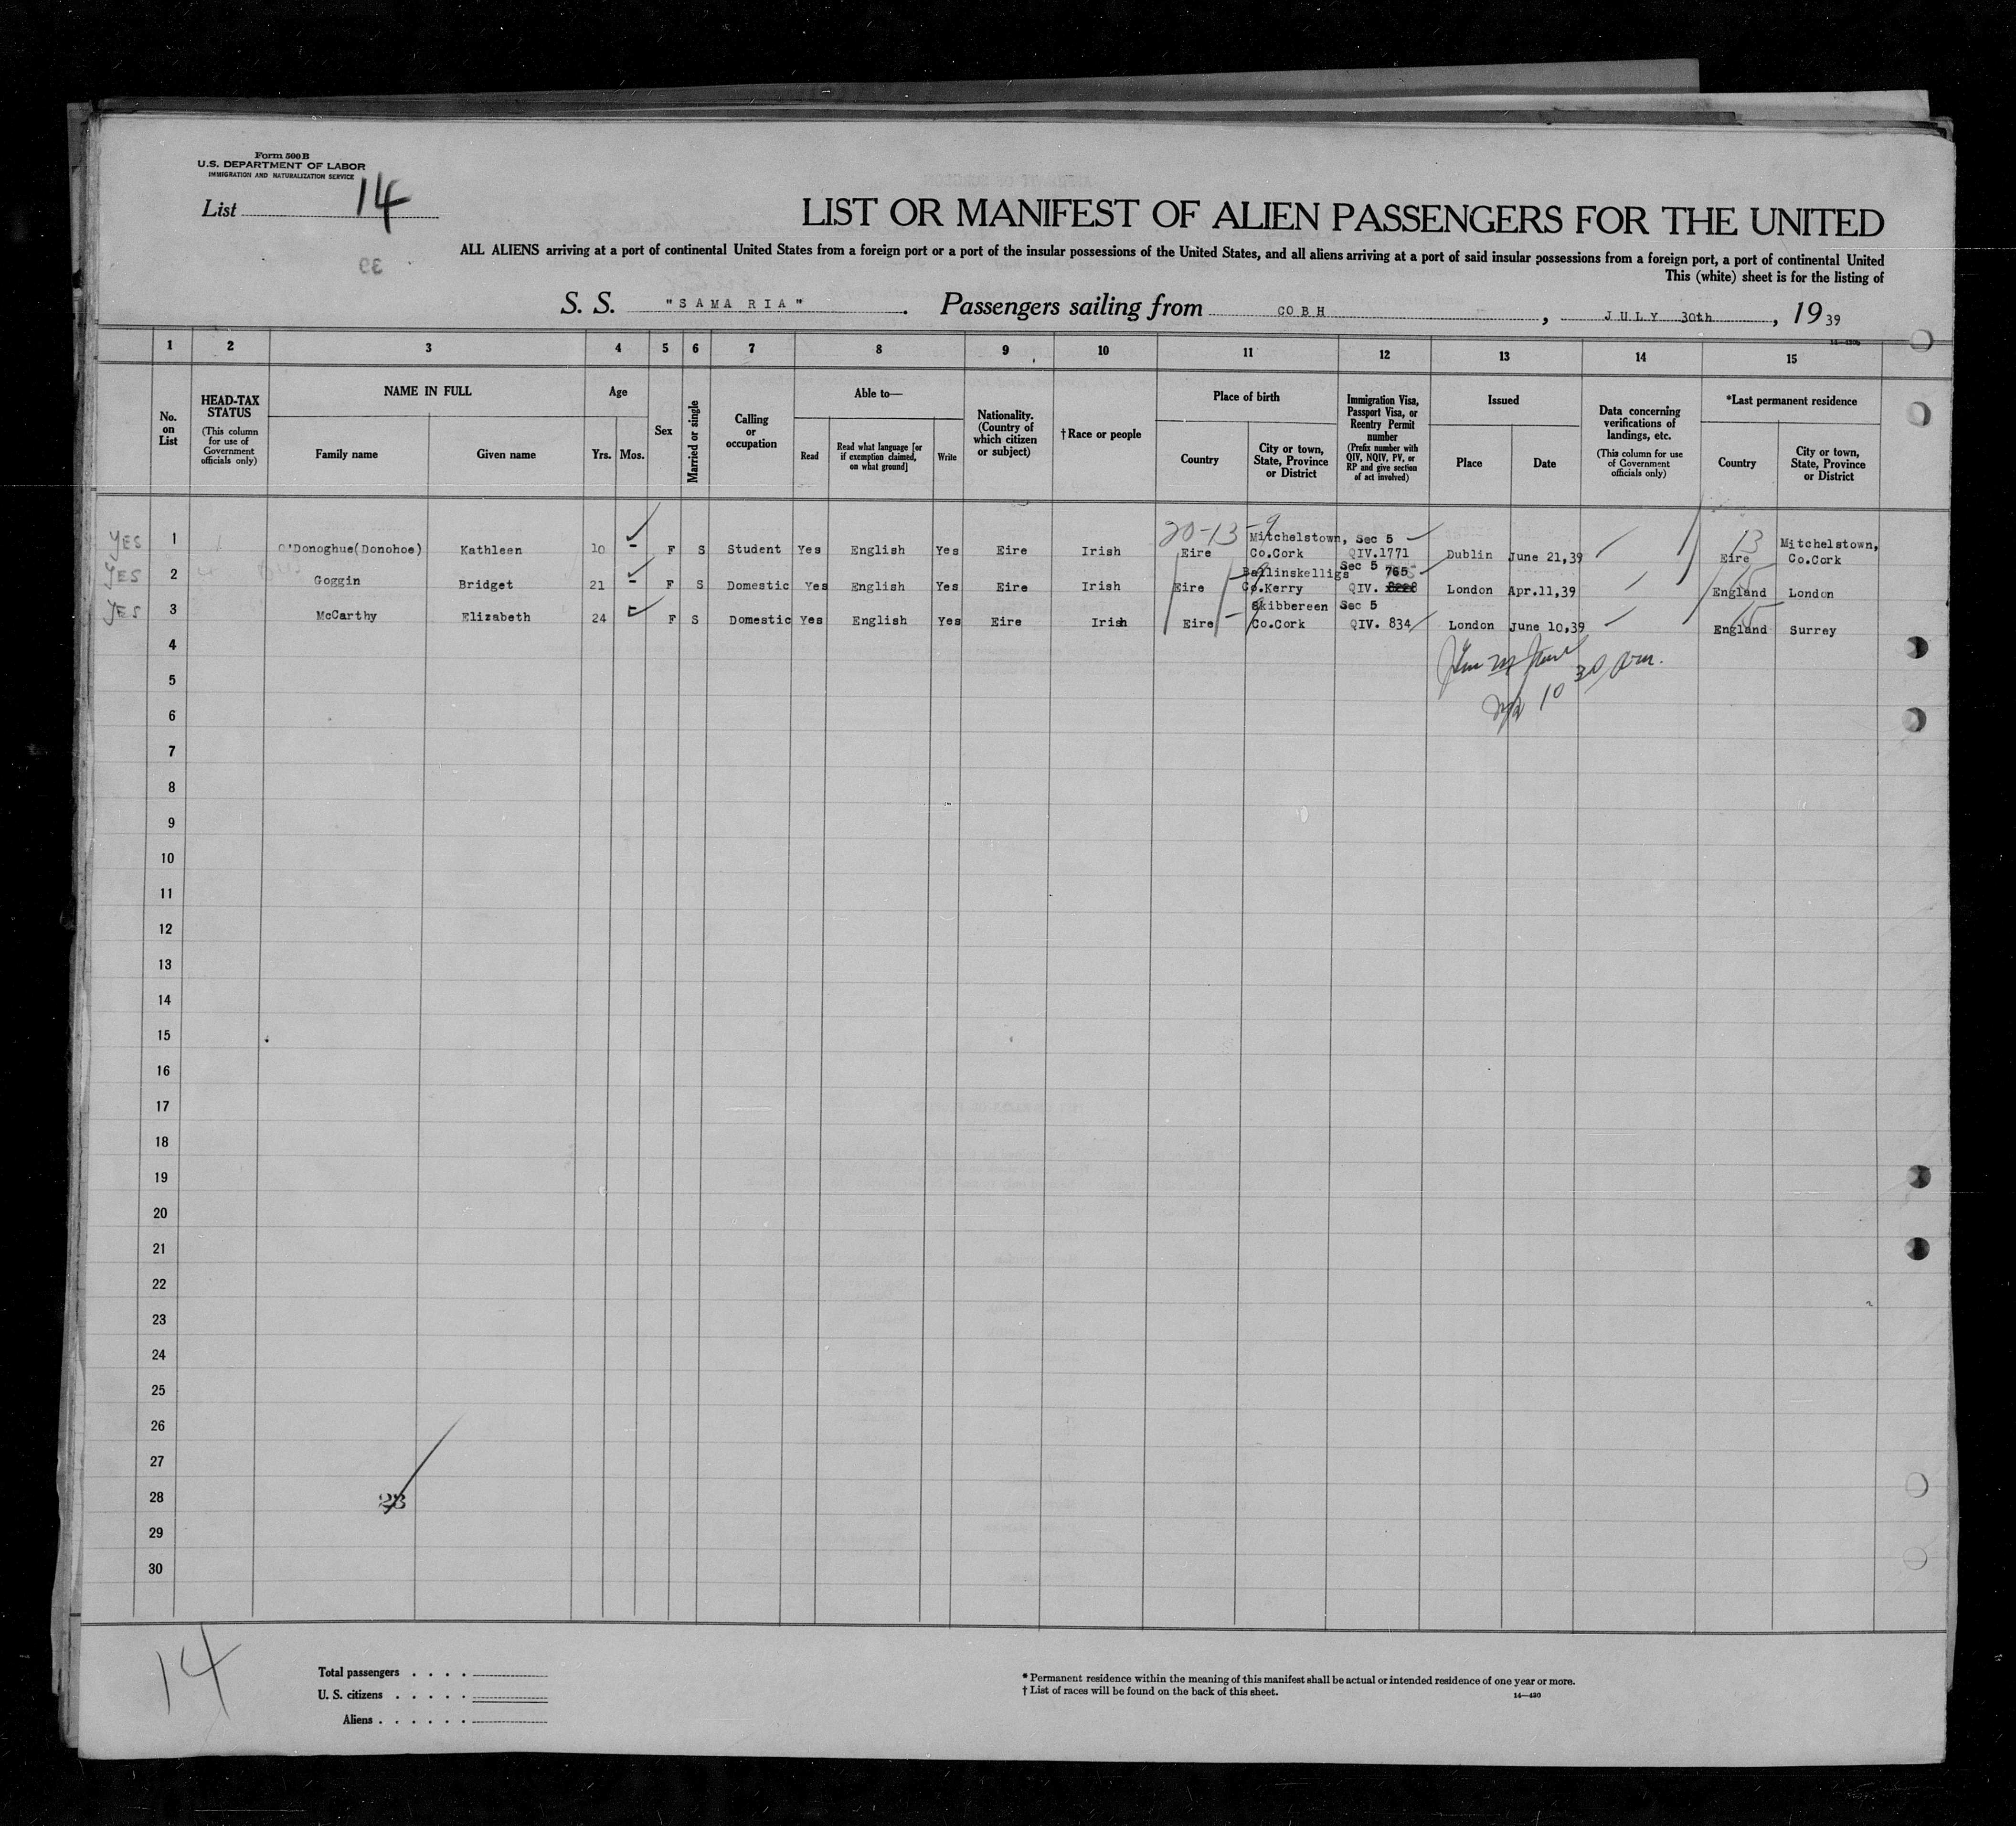 Form 500 B
U.S. DEPARTMENT OF LABOR
IMMIGRATION AND NATURALIZATION SERVICE
List 14
LIST OR MANIFEST OF ALIEN PASSENGERS FOR THE UNITED
ALL ALIENS arriving at a port of continental United States from a foreign port or a port of the insular possessions of the United States, and all aliens arriving at a port of said insular possessions from a foreign port, a port of continental United
This (white) sheet is for the listing of
S. S. "SAMARIA". Passengers sailing from COBH, JULY 30th, 19 39
1 2 3 4 5 6 7 8 9 10 11 12 13 14 15
No. on List
HEAD-TAX STATUS (This column for use of Government officials only)
NAME IN FULL Family name Given name
Age Yrs. Mos.
Sex
Married or single
Calling or occupation
Able to— Read Read what language [or if exemption claimed, on what ground] Write
Nationality. (Country of which citizen or subject)
†Race or people
Place of birth Country City or town, State, Province or District
Immigration Visa, Passport Visa, or Reentry Permit number (Prefix number with QIV, NQIV, PV, or RP and give section of act involved)
Issued Place Date
Data concerning verifications of landings, etc. (This column for use of Government officials only)
*Last permanent residence Country City or town, State, Province or District
YES 1 O'Donoghue(Donohoe) Kathleen 10 - F S Student Yes English Yes Eire Irish 20-13-9 Eire Mitchelstown, Co.Cork Sec 5 QIV.1771 Dublin June 21,39 13 Eire Mitchelstown, Co.Cork
YES 2 Goggin Bridget 21 - F S Domestic Yes English Yes Eire Irish Eire Ballinskelligs Co.Kerry Sec 5 765 QIV. London Apr.11,39 England London
YES 3 McCarthy Elizabeth 24 - F S Domestic Yes English Yes Eire Irish Eire Skibbereen Co.Cork Sec 5 QIV. 834 London June 10,39 England Surrey
4
5
6
7
8
9
10
11
12
13
14
15
16
17
18
19
20
21
22
23
24
25
26
27
28 23
29
30
14
Total passengers . . . .
U. S. citizens . . . . .
Aliens . . . . . .
* Permanent residence within the meaning of this manifest shall be actual or intended residence of one year or more.
† List of races will be found on the back of this sheet.
14—430